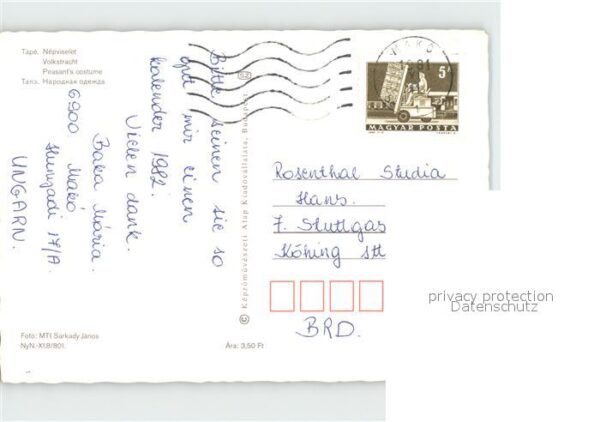 Tapé. Népviselet
Volkstracht
Peasant's costume
Тапэ. Народная одежда
Bitte seinen sie so
gut mir einen
kalender 1982.
Vielen dank.
Baka Mária.
6900 Makó
Hunyadi 17/A.
UNGARN.
Fotó: MTI Sarkady János
NyN.-XI.8/801.
Ára: 3,50 Ft
© Képzőművészeti Alap Kiadóvállalata, Budapest
MAKÓ
81
5Ft
MAGYAR POSTA
Rosenthal Studia
Hans.
7. Stuttgas
Köhing stt
BRD.
privacy protection
Datenschutz